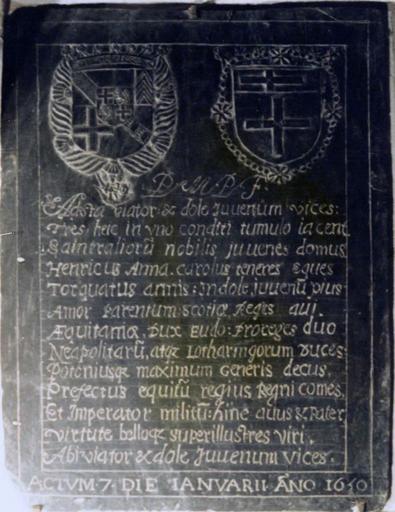 D. M. P. F.
Adsta viator & dole juvenum vices:
Tres heic in vno conditi tumulo iacent
Saintraliorū nobilis juvenes domus
Henricus Anna carolus teneres eques
Torquatus armis: indole juvenū pius
Amor parentum: scotiæ Reges aūi
Æquitaniæ Dux Eudo: Proreges duo
Neapolitarū, atqz Lotharingorum duces
Potoniusqz maximum generis decus,
Prefectus equitū regius Regni comes,
Et Imperator militū: hinc auus & Pater
virtute belloqz superillustres viri.
Abi viator & dole juvenum vices.
ACTVM 7 DIE IANVARII ÃNO